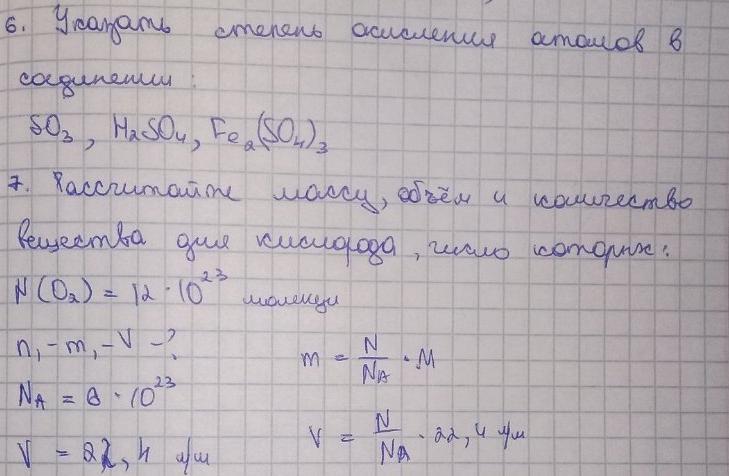 6. Указать степень окисления атомов в
соединении:
SO₃, H₂SO₄, Fe₂(SO₄)₃
7. Рассчитайте массу, объём и количество
вещества для кислорода, число которых:
N(O₂) = 12 · 10²³ молекул
n, - m, - V - ?
m = N/Nᴀ · M
Nᴀ = 6 · 10²³
V = N/Nᴀ · 22,4 л/м
V = 22,4 л/м